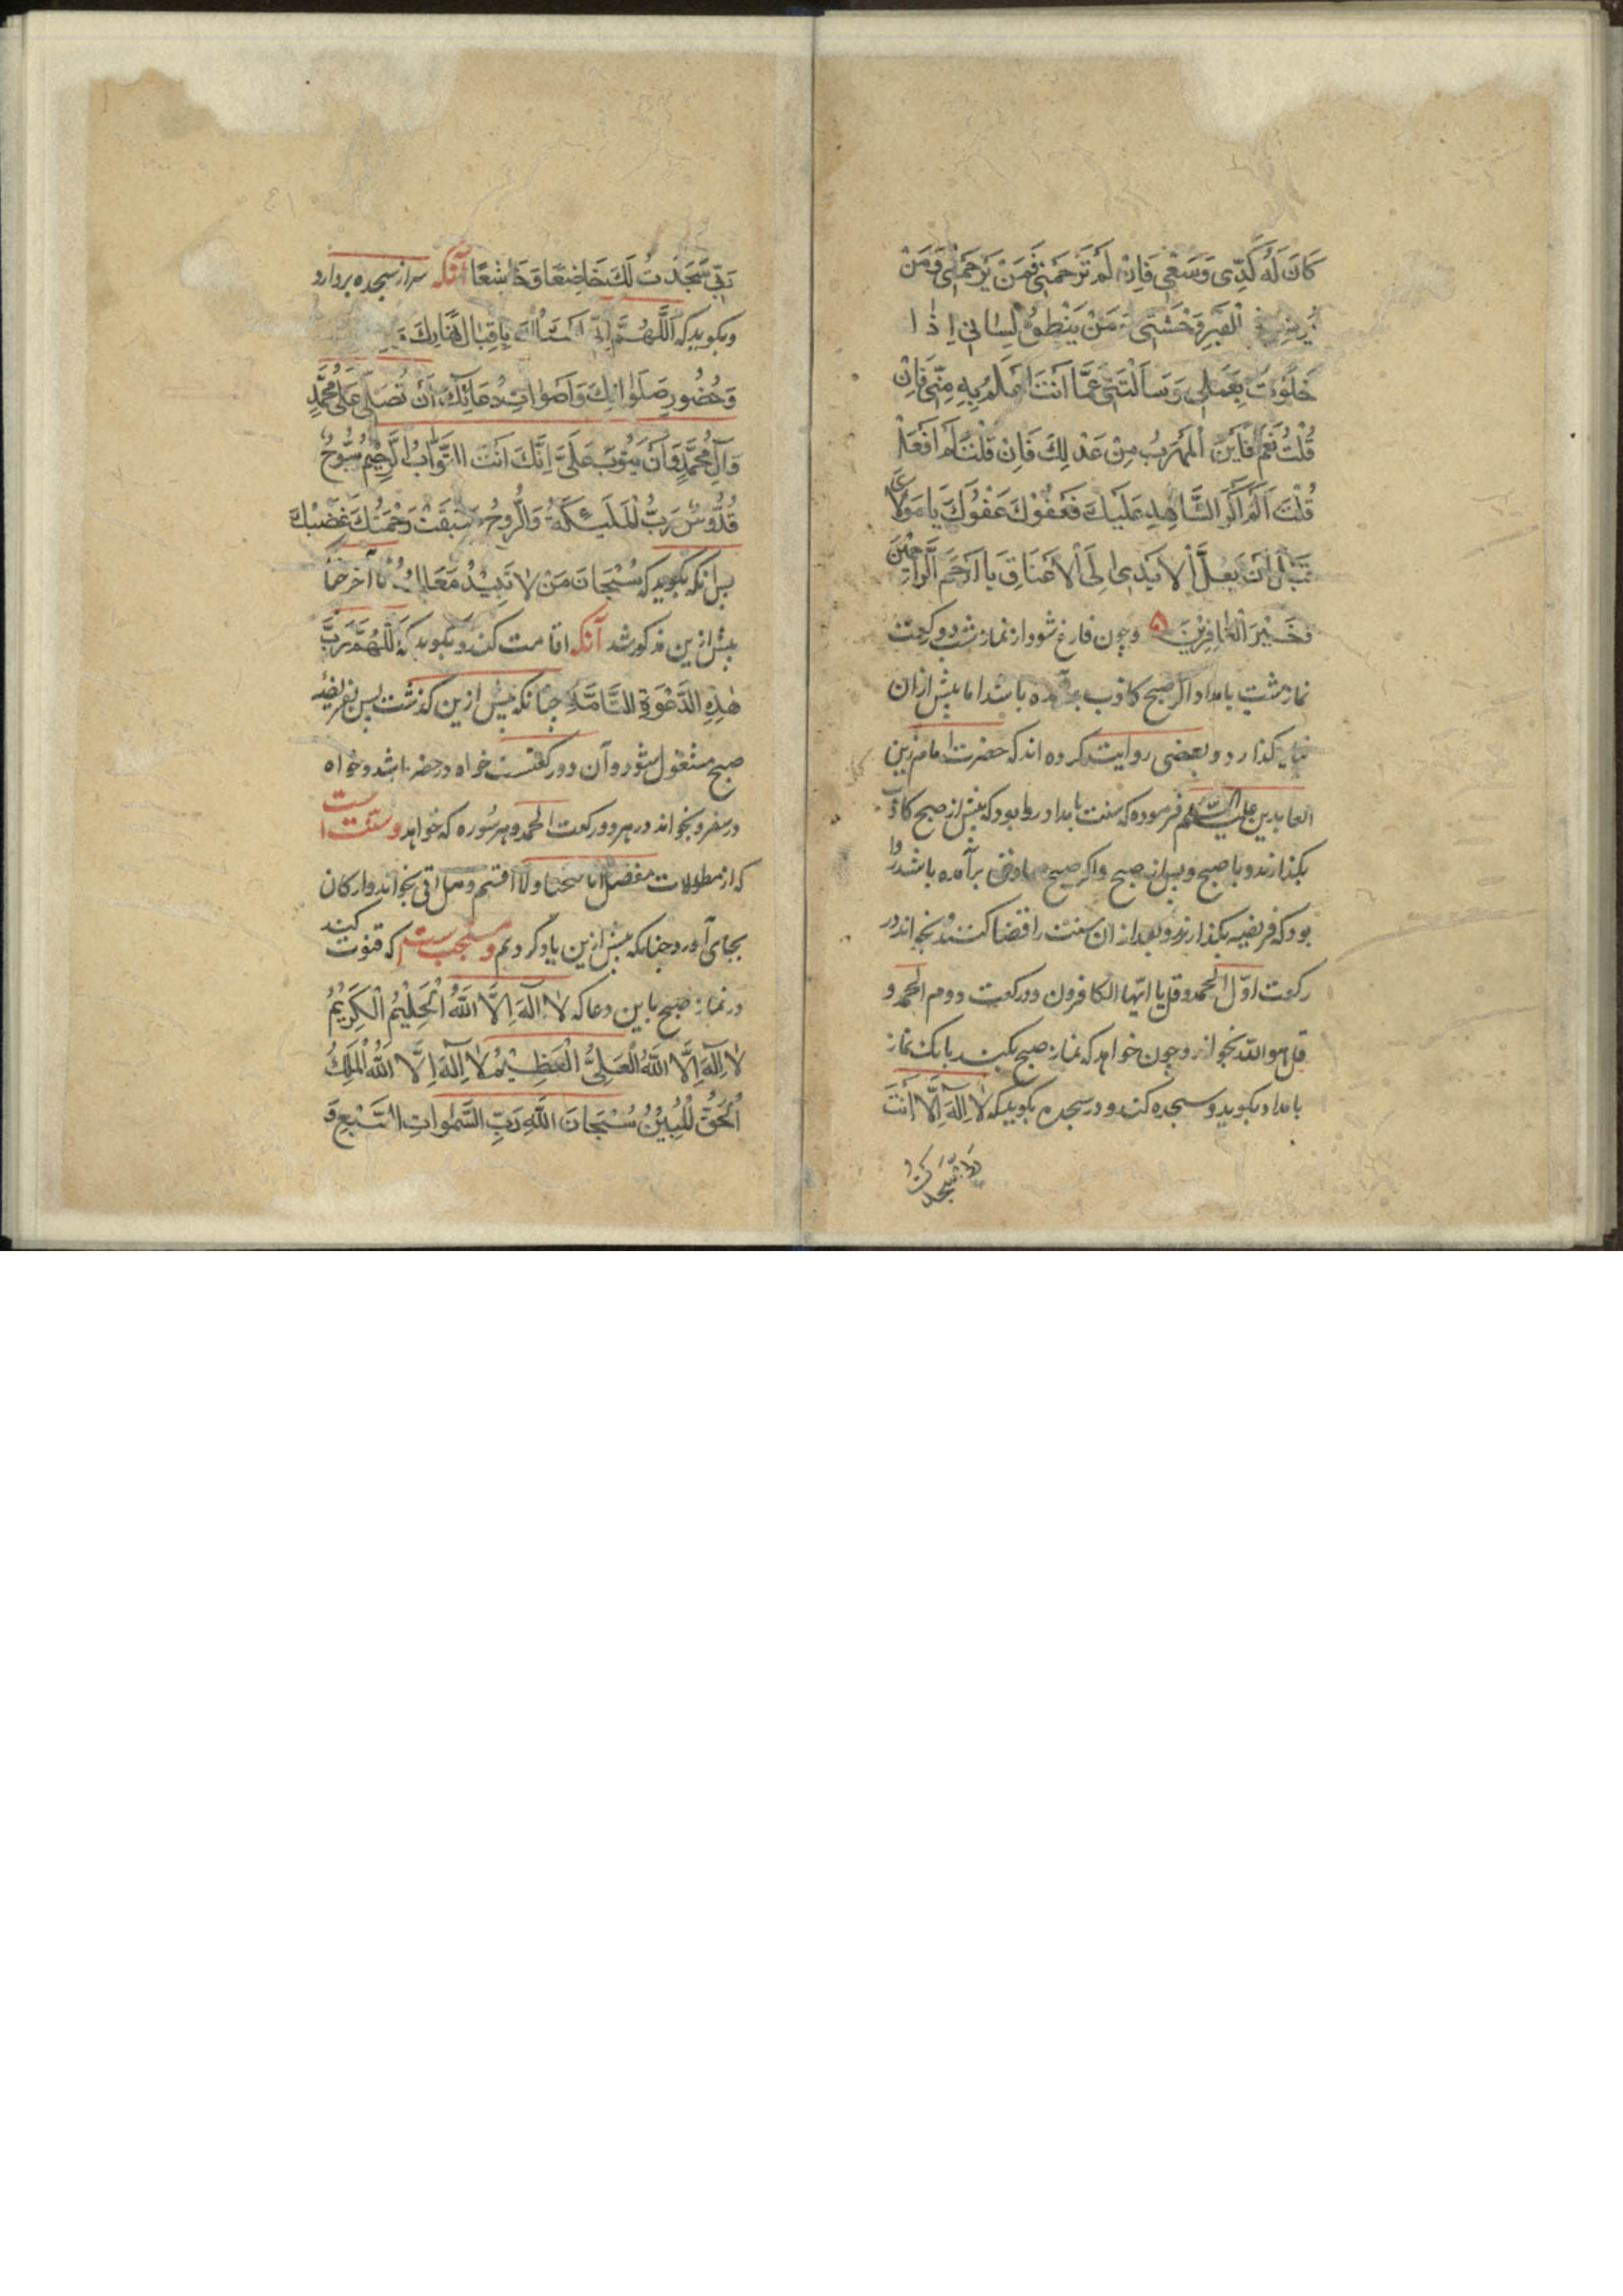 كَانَ لَهُ كَدِّى وَسَعْيِى فَاِنْ لَمْ تَرْحَمْنِى فَمَنْ يَرْحَمُنِى وَمَنْ
الْقَبْرِ وَحْشَتِى وَمَنْ يَنْطِقُ لِسَانِى اِذَا
خَلَوْتُ بِعَمَلِى وَسَاَلْتَنِى عَمَّا اَنْتَ اَعْلَمُ بِهِ مِنِّى فَاِنْ
قُلْتُ نَعَمْ فَاَيْنَ الْمَهْرَبُ مِنْ عَدْلِكَ فَاِنْ قُلْتُ لَمْ اَفْعَلْ
قُلْتَ اَلَمْ اَكُنِ الشَّاهِدَ عَلَيْكَ فَعَفْوُكَ عَفْوُكَ يَا مَوْلَاىَ
قَبْلَ اَنْ تُغَلَّ الْاَيْدِى اِلَى الْاَعْنَاقِ يَا اَرْحَمَ الرَّاحِمِينَ
وَخَيْرَ الْغَافِرِيْنَ ۵ وچون فارغ شود از نماز شب دو ركعت
نماز سنت بامداد اكر صبح كاذب برآمده باشد اما بيش از ان
كذارد و بعضى روايت كرده اند كه حضرت امام زين
العابدين عليه السلام فرموده كه سنت بامداد روا بود كه بيش از صبح كاذب
بكذارند و با صبح و بس از صبح واكر صبح صادق برآمده باشد روا
بود كه فريضه بكذارند و بعد از ان سنت را قضا كنند و بخواند در
ركعت اوّل الحمد وقل يا ايّها الكافرون و در ركعت دوم الحمد و
قل هو اللّه بخواند و چون خواهد كه نماز صبح بكند بانك نماز
بامداد بكويد و سجده كند و در سجده بكويد كه لَا اِلَهَ اِلَّا اَنْتَ
رَبِّى سَجَدْتُ لَكَ
رَبِّى سَجَدْتُ لَكَ خَاضِعًا وَخَاشِعًا آنكه سر از سجده بردارد
وبكويد كه اَللَّهُمَّ اِنِّى اَسْئَاُلكَ بِاِقْبَالِ نَهَارِكَ
وَحُضُورِ صَلَوَاتِكَ وَاَصْوَاتِ دُعَائِكَ اَنْ تُصَلِّىَ عَلَى مُحَمَّدٍ
وَآلِ مُحَمَّدٍ وَاَنْ تَتُوْبَ عَلَىَّ اِنَّكَ اَنْتَ التَّوَّابُ الرَّحِيْمُ سُبُّوْحٌ
قُدُّوْسٌ رَبُّ الْمَلَئِكَةِ وَالرُّوْحِ سَبَقَتْ رَحْمَتُكَ غَضَبَكَ
بس انكه بكويد كه سُبْحَانَ مَنْ لَا تَبِيْدُ مَعَالِمُهُ تا آخر چنانكه
بيش ازين مذكور شد آنكه اقامت كند و بكويد كه اَللَّهُمَّ رَبَّ
هٰذِهِ الدَّعْوَةِ التَّامَّةِ چنانكه بيش ازين كذشت بس بفريضهٔ
صبح مشغول شود و آن دو ركعتست خواه در حضر باشد و خواه
در سفر و بخواند در هر دو ركعت الحمد و هر سُوره كه خواهد و سنتست
كه از مطولات مفصل انا فتحنا ولا اقسم وهل اتى بخواند و اركان
بجاى آورد چنانكه بيش ازين ياد كرديم و مستحبست كه قنوت كند
در نماز صبح باين دعا كه لَا اِلَهَ اِلَّا اللّٰهُ الْحَلِيْمُ الْكَرِيْمُ
لَا اِلَهَ اِلَّا اللّٰهُ الْعَلِىُّ الْعَظِيْمُ لَا اِلَهَ اِلَّا اللّٰهُ الْمَلِكُ
الْحَقُّ الْمُبِيْنُ سُبْحَانَ اللّٰهِ رَبِّ السَّمٰوَاتِ السَّبْعِ وَ